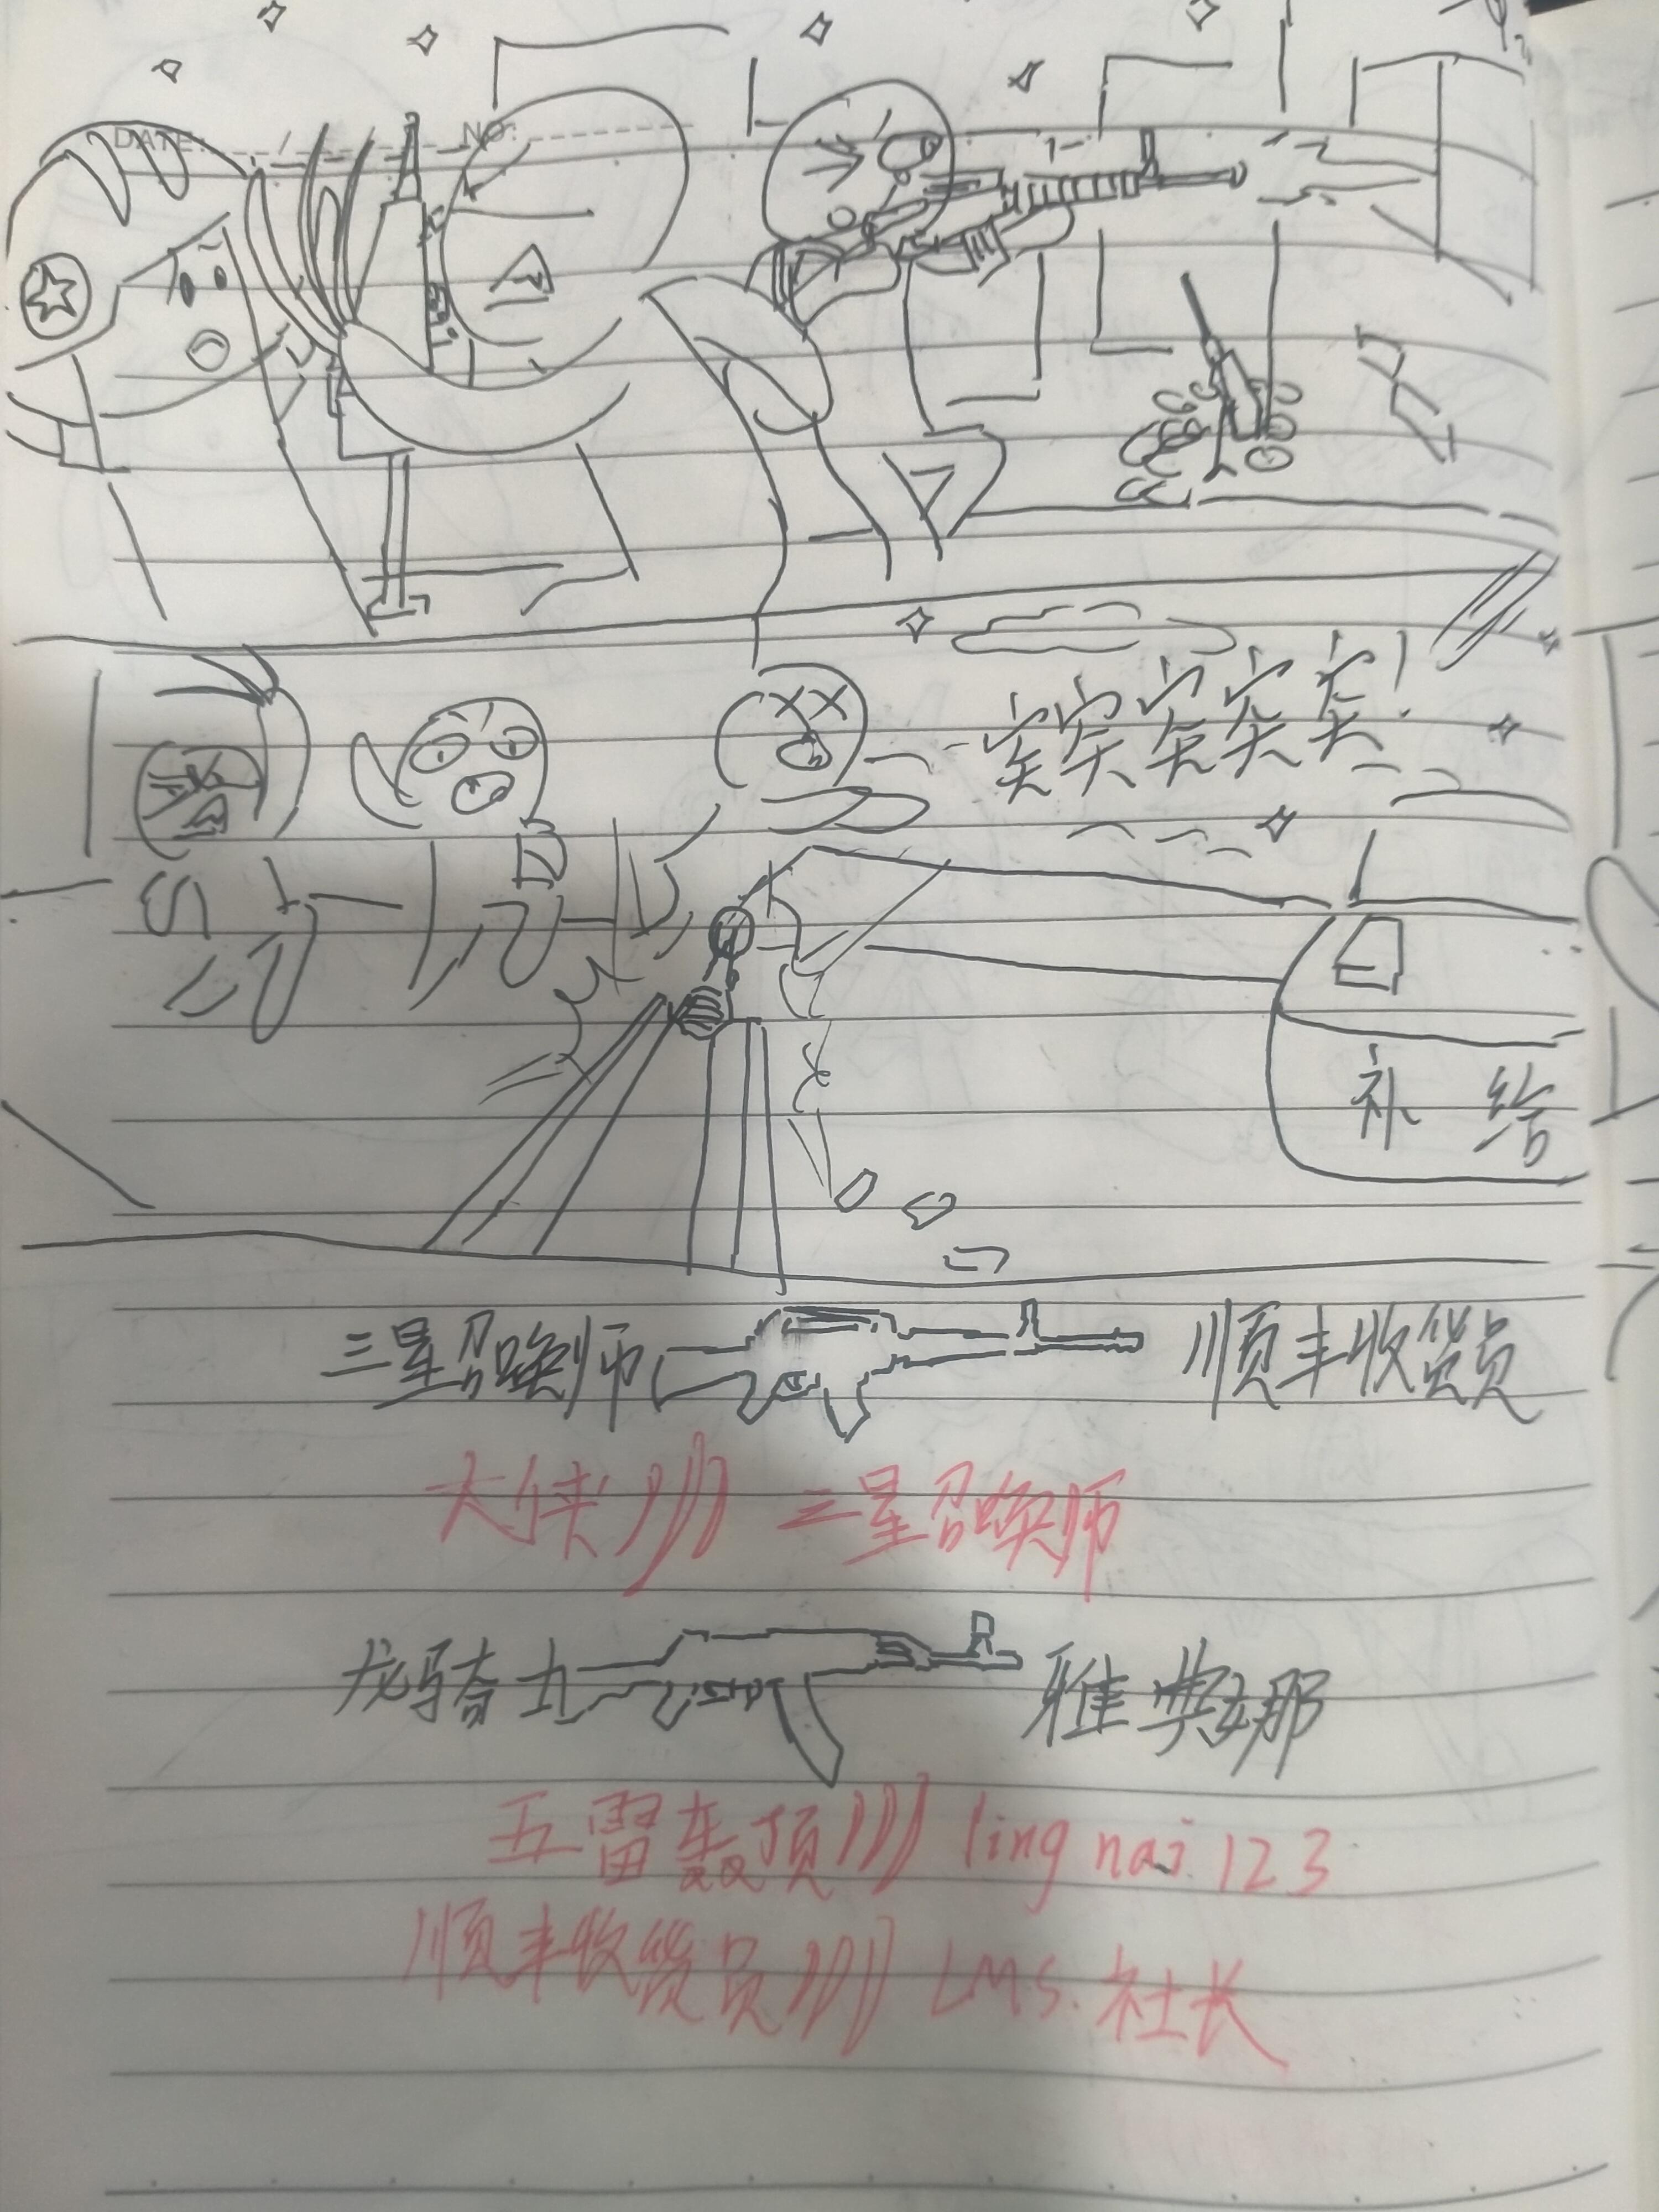 DATE: / / NO:
突突突突突!
补 给
三星召唤师 顺丰收货员
大侠))) 三星召唤师
龙骑士 雅典娜
五雷轰顶))) ling nai 123
顺丰收货员))) LMS.社长